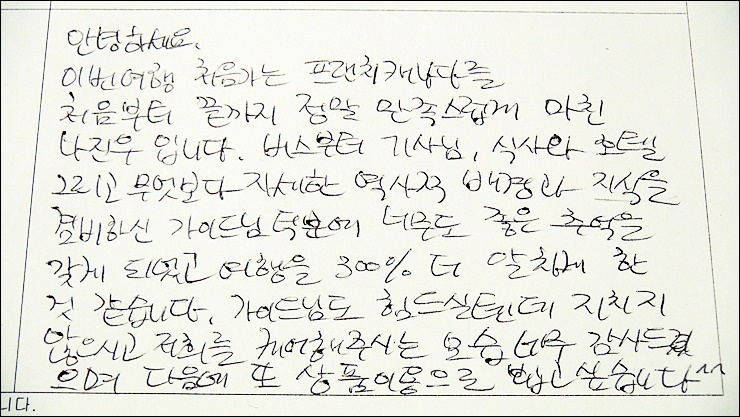 안녕하세요.
이번여행 처음가는 프랜치캐나다를
처음부터 끝까지 정말 만족스럽게 마친
나진우 입니다. 버스부터 기사님, 식사와 호텔
그리고 무엇보다 자세한 역사적 배경과 지식을
겸비하신 가이드님 덕분에 너무도 좋은 추억을
갖게 되었고 여행을 300% 더 알차게 한
것 같습니다. 가이드님도 힘드실텐데 지치지
않으시고 저희를 케어해주시는 모습 너무 감사드렸
으며 다음에 또 상품이용으로 뵙고 싶습니다^^
니다.